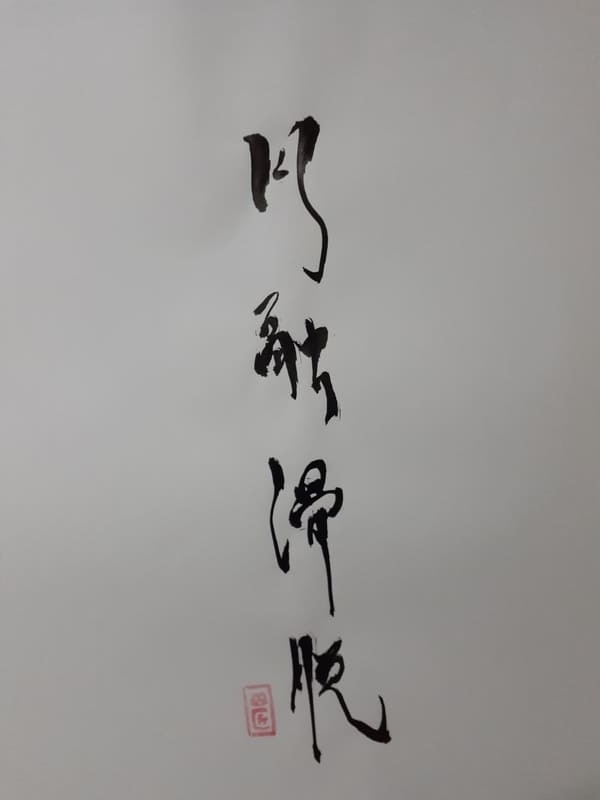 円融滑脱